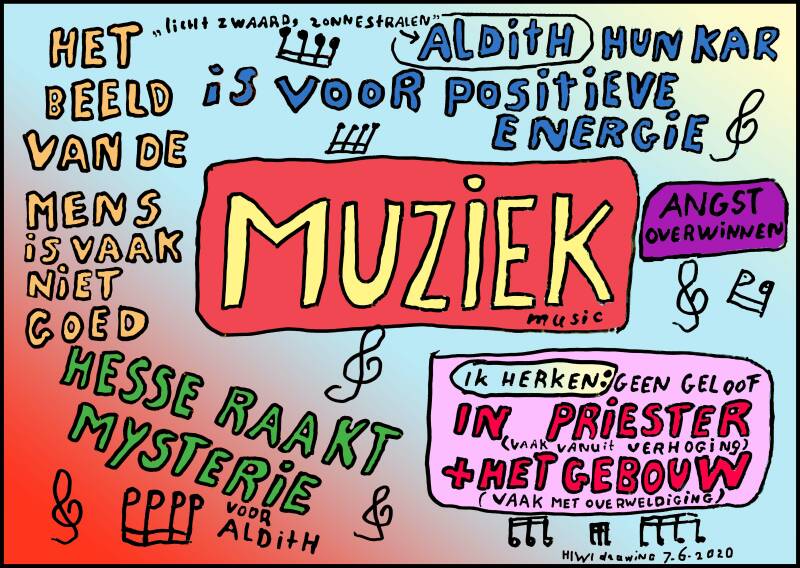 „licht zwaard, zonnestralen”
ALDitH HUN KAR
iS VOOR POSitiEVE
ENERGiE
HET
BEELD
VAN DE
MENS
iS VAAK
NiET
GOED
MUZiEK
music
ANGST
OVERWiNNEN
HESSE RAAKT
MYSTERiE
VOOR
ALDitH
iK HERKEN: GEEN GELOOF
IN PRiESTER
(VAAK VANUit VERHOGiNG)
+ HET GEBOUW
(VAAK MET OVERWELDiGiNG)
HIWI drawing 7-6-2020